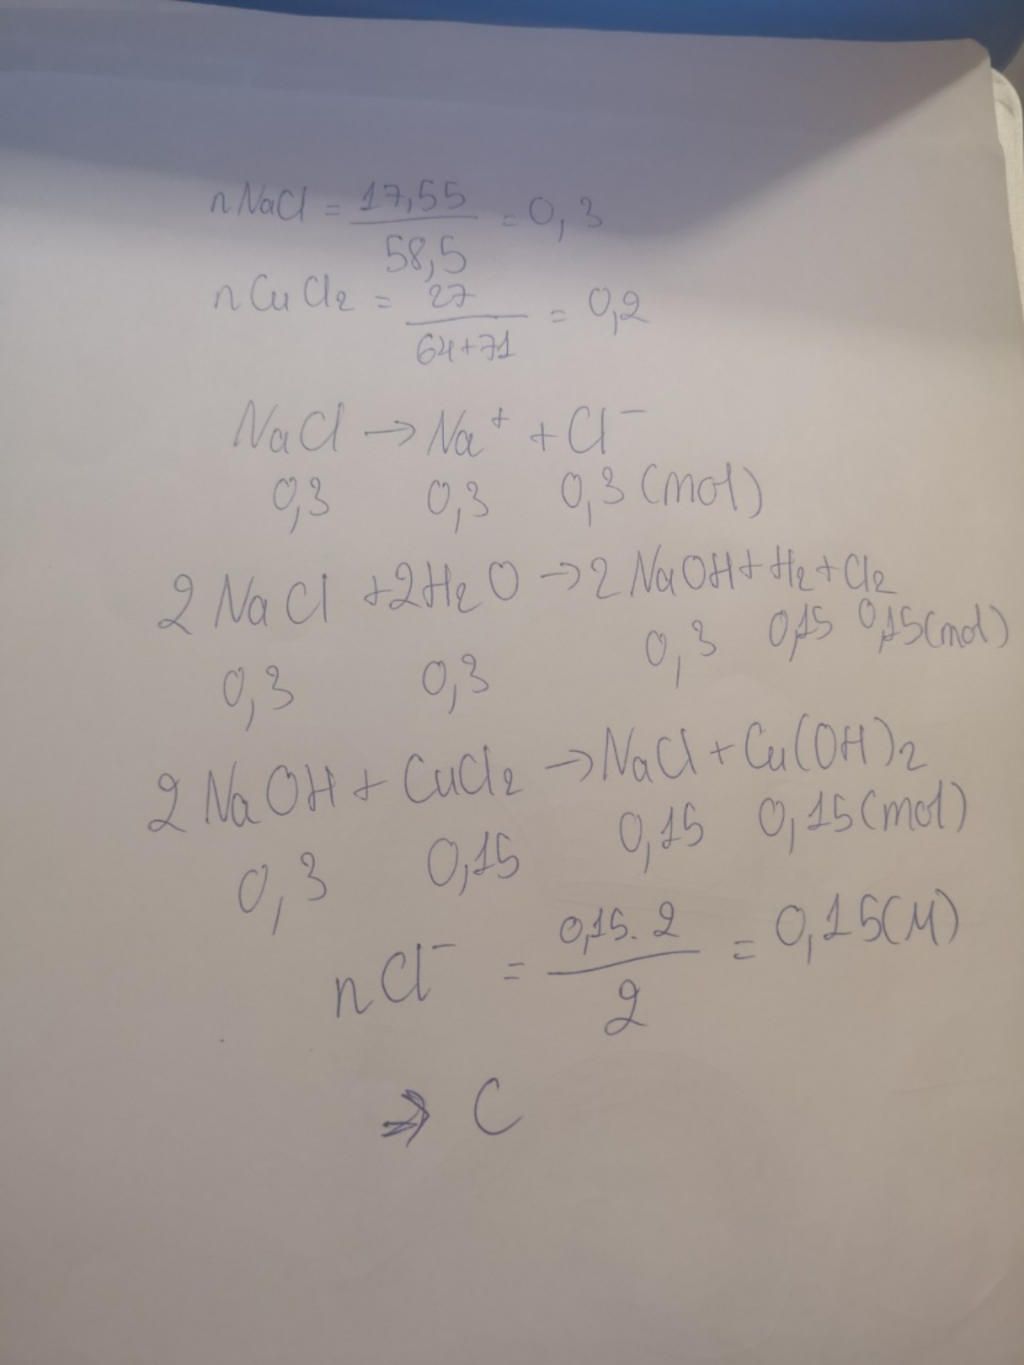 nNaCl = 17,55 / 58,5 = 0,3
nCuCl2 = 27 / 64+71 = 0,2
NaCl → Na⁺ + Cl⁻
0,3 0,3 0,3 (mol)
2NaCl + 2H2O → 2NaOH + H2 + Cl2
0,3 0,3 0,3 0,15 0,15 (mol)
2NaOH + CuCl2 → NaCl + Cu(OH)2
0,3 0,15 0,15 0,15 (mol)
nCl⁻ = 0,15.2 / 2 = 0,15(M)
⇒ C